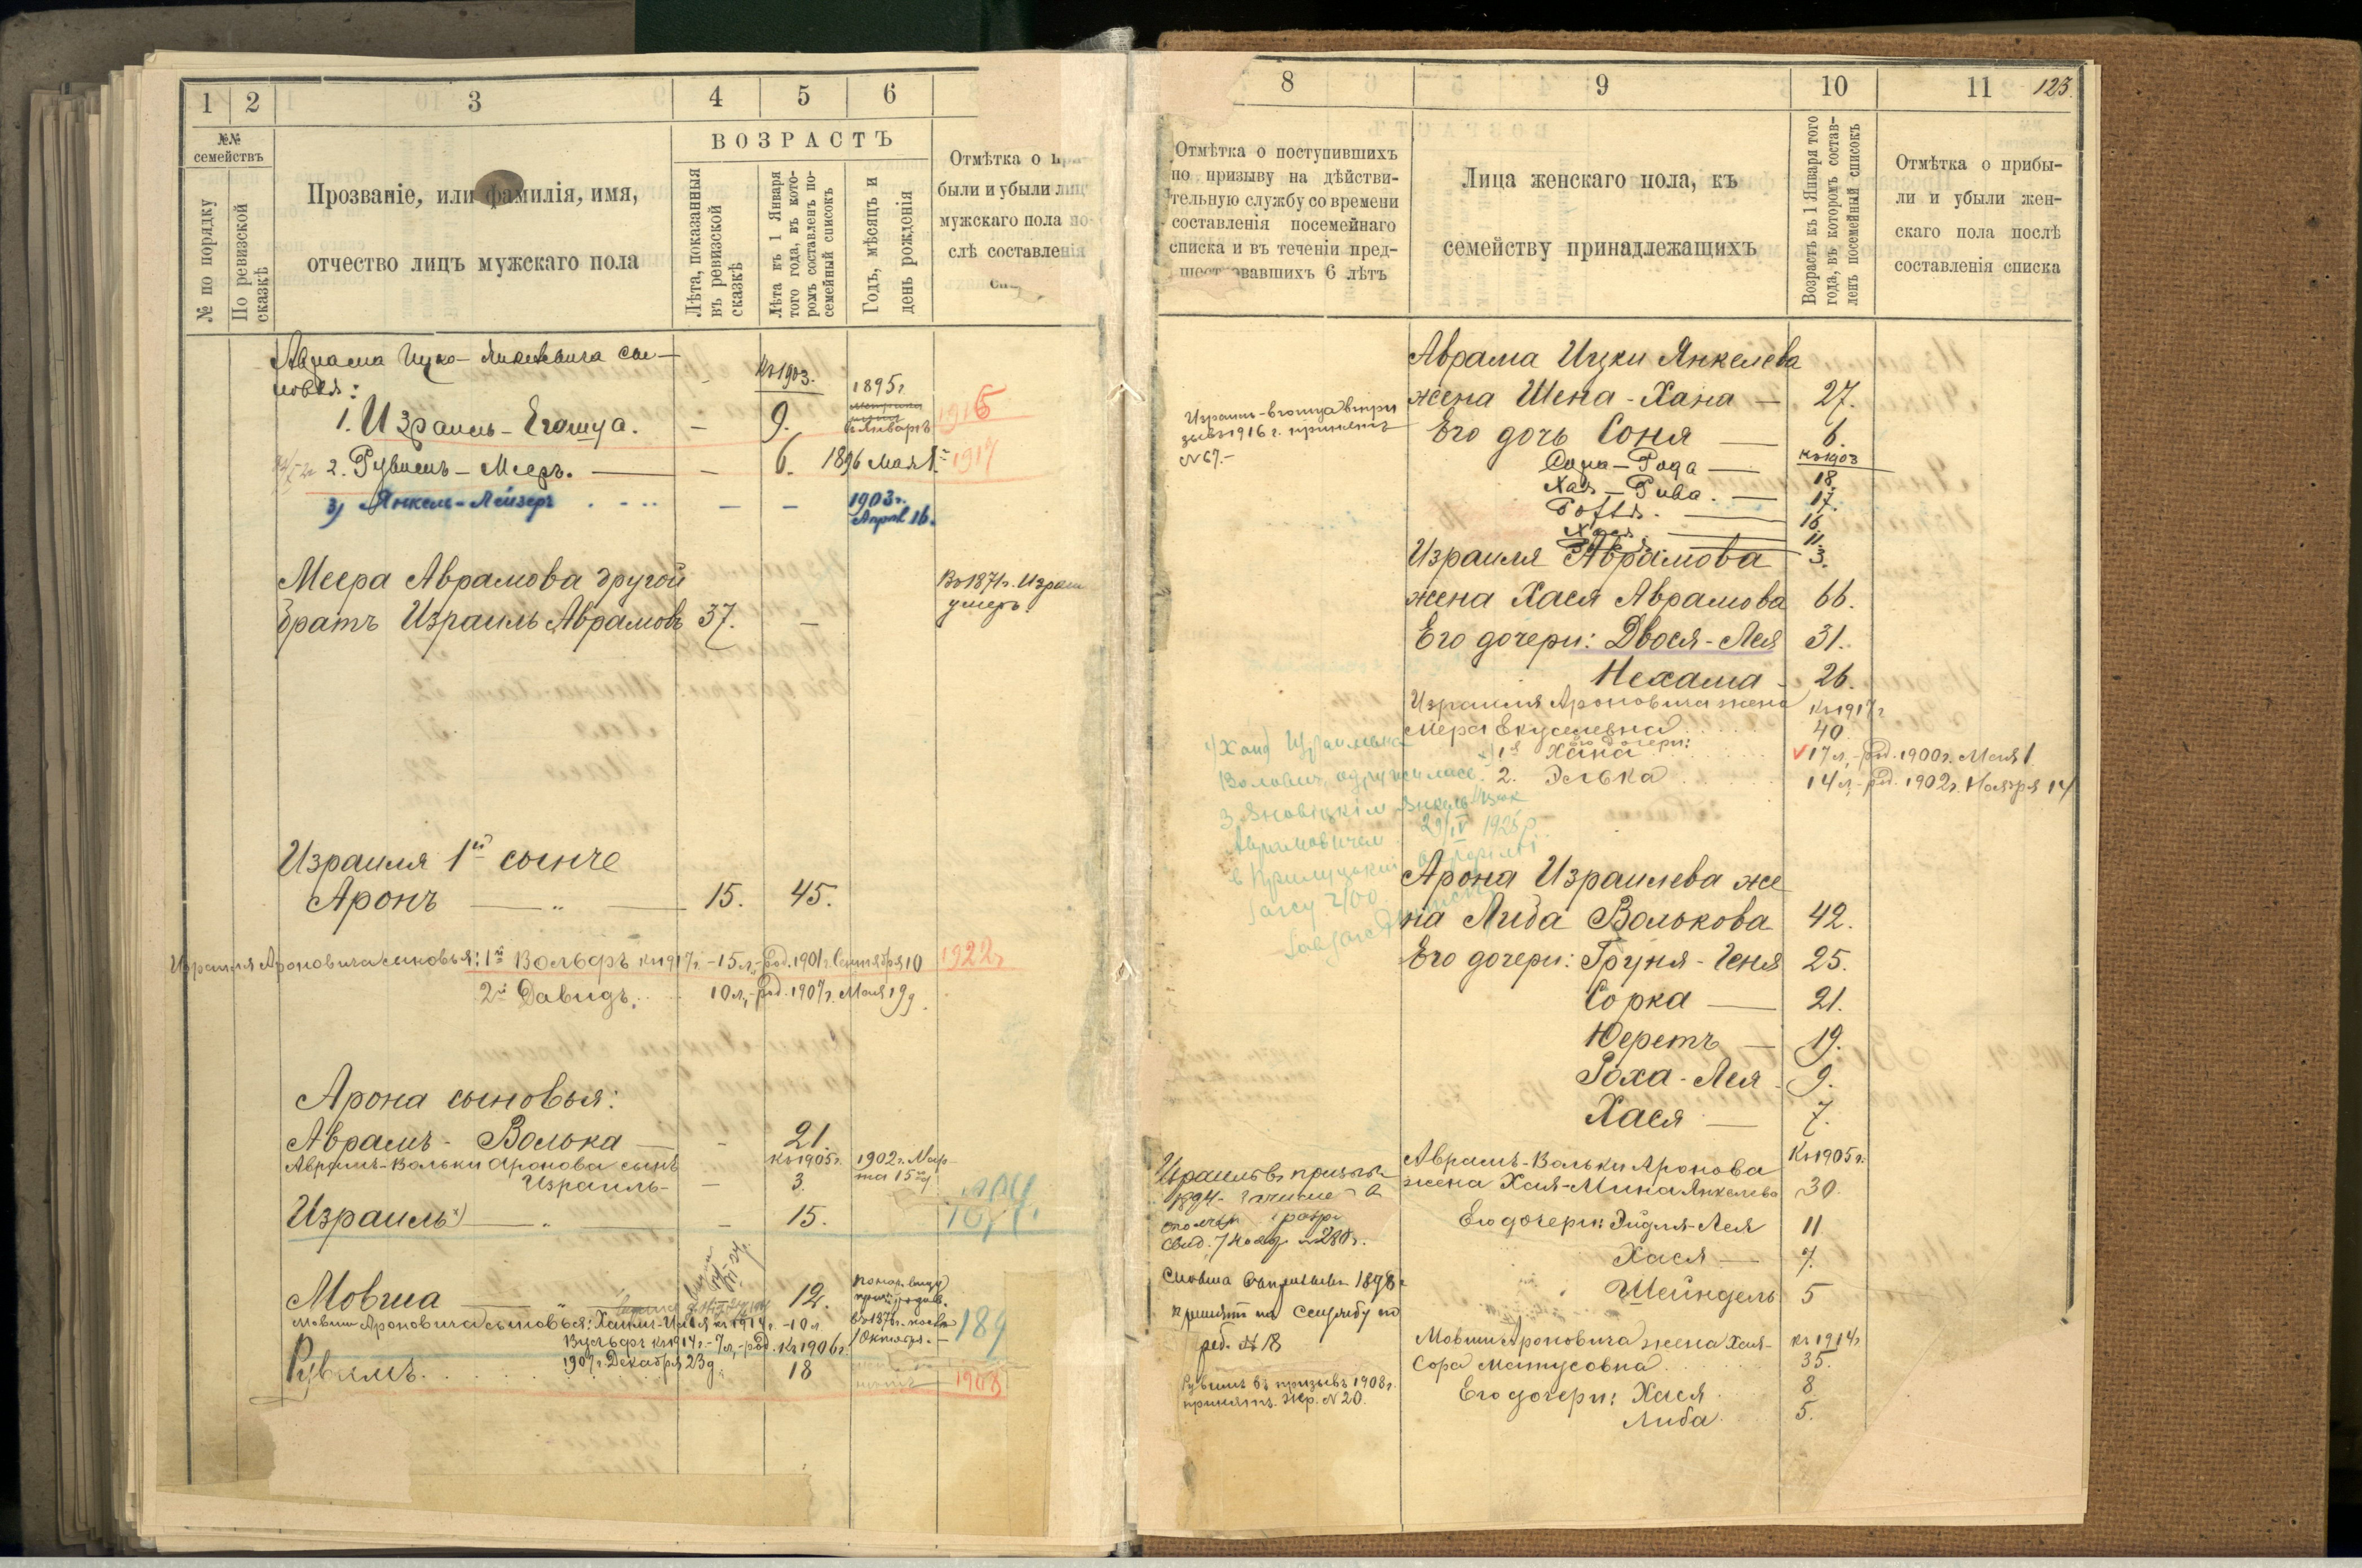 1 2 3 4 5 6
№№
семействъ
№ по порядку
По ревизской
сказкѣ
Прозваніе, или фамилія, имя,
отчество лицъ мужскаго пола
ВОЗРАСТЪ
Лѣта, показанныя
въ ревизской
сказкѣ
Лѣта къ 1 Января
того года, въ кото-
ромъ составленъ по-
семейный списокъ
Годъ, мѣсяцъ и
день рожденія
Отмѣтка о при-
были и убыли лиц
мужскаго пола по-
слѣ составленія
Аврама Ицко-Янкелевича сы-
новья:
Къ 1903.
1895 г.
1. Израиль-Егошуа. — 9. Январъ 1916
2. Рувимъ-Меер. — — 6. 1896 Мая 1. 1917
3) Янкель-Лейзеръ — — 1903 г.
Апрѣл 16.
Меера Аврамова другой
братъ Израиль Аврамовъ 37. —
Въ 1871 г. Израи
умеръ
Израиля 1й сынъ
Аронъ — " — 15. 45.
Израиля Ароновича сыновья: 1й Вольфъ къ 1917 г. - 15 л, - род. 1901 г. Сентября 10 1922
2й Давидъ. 10 л, - род. 1907 г. Мая 19 д.
Арона сыновья:
Аврамъ - Волька — - 21.
Аврамъ-Вольки Аронова сынъ Къ 1905 г. 1902 г. Мар-
Израиль - — 3. та 15 д
Израиль — " - 15.
Мовша — " 12.
Мовши Ароновича сыновья: къ 1914 г. - 10 л
Вульфъ къ 1914 г. - 7 л, - род. Къ 1906 г. 1 Октября. - 189
1907 г. Декабря 23 д.
Рувимъ. 18 1908
8 9 10 11 123.
Отмѣтка о поступившихъ
по призыву на дѣйстви-
тельную службу со времени
составленія посемейнаго
списка и въ теченіи пред-
шествовавшихъ 6 лѣтъ
Лица женскаго пола, къ
семейству принадлежащихъ
Возрастъ къ 1 Января того
года, въ которомъ состав-
ленъ посемейный списокъ
Отмѣтка о прибы-
ли и убыли жен-
скаго пола послѣ
составленія списка
Аврама Ицки Янкелева
жена Шена-Хана — 27.
Израиль-Егошуа въ при
зывъ 1916 г. принятъ
№ 67. -
Его дочь Соня — 6.
Къ 1903
Сора-Рода — 18.
Хая-Рива. — 17.
16.
11.
3.
Израиля Аврамова
жена Хася Аврамова 66.
Его дочери: Двося-Лея 31.
Нехама - 26.
Израиля Ароновича жена Къ 1917 г
Мера Екусіевна 40.
его дочери:
1я Хана 17 л, - род. 1900 г. Мая 1.
2. Элька 14 л, - род. 1902 г. Ноября 14
1) Хана Израильвна
Волович, одружилась
з Яновіцкім
Аврамовичем 29/IV 1925 р.
в Прилуцькій
Арона Израилева же
на Либа Волькова 42.
Его дочери: Груня-Геня 25.
Сорка — 21.
Юретъ — 19.
Роха-Лея - 9.
Хася — 7.
Аврамъ-Вольки Аронова Къ 1905 г.
жена Хая-Мина Янкелева 30.
Его дочери: Эйдля-Лея 11
Хася — 7.
Шейндель 5
Израиль въ призыв
1894 - зачисле
свид. 7 Нояб
Мовша въ призывъ 1898 г
принятъ на службу по
№ 18
Мовши Ароновича жена Хая- къ 1914 г
Сора Матусовна 35.
Его дочери: Хася 8
Либа. 5.
Рувимъ въ призывъ 1908 г.
принятъ. жер. № 20.